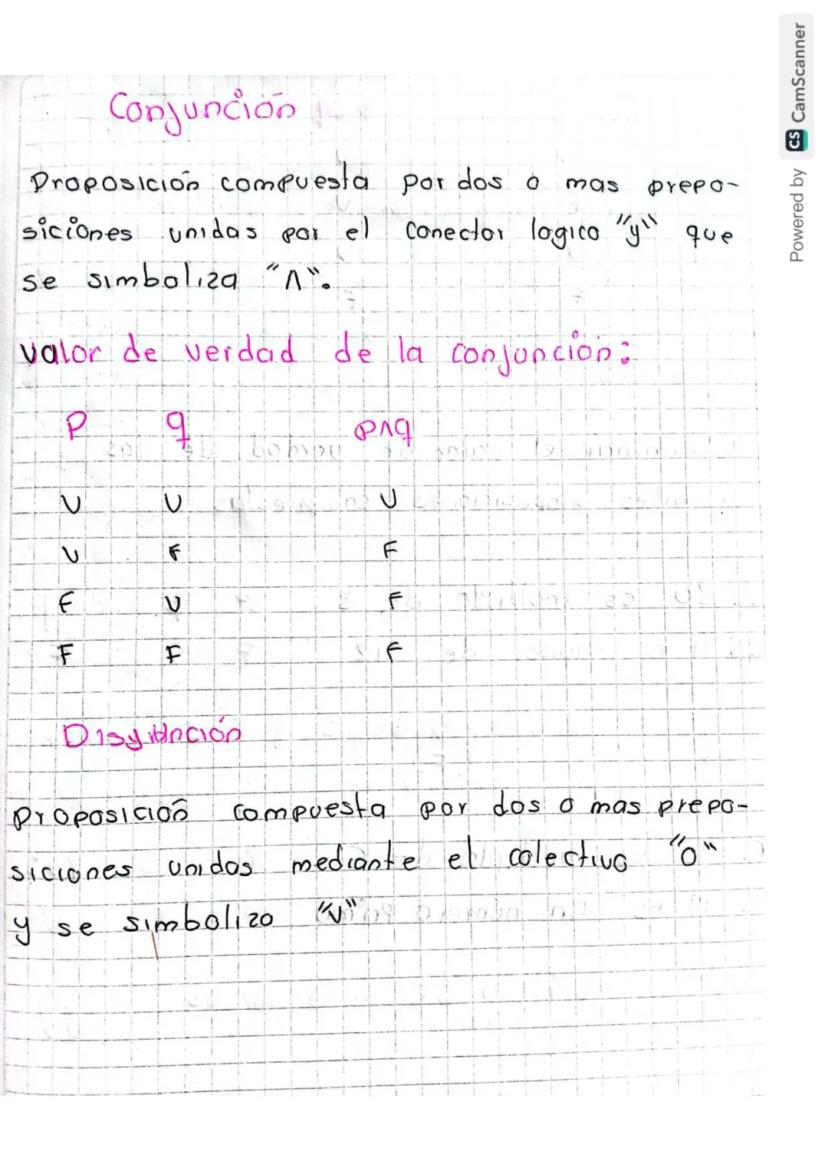 Conjunción
Proposición compuesta por dos o mas prepo-
siciones unidas por el conector logico "y" que
se simboliza "Λ".
valor de verdad de la conjunción:
P q p∧q
V V V
V F F
F V F
F F F
Disyunción
Proposición compuesta por dos o mas prepo-
siciones unidos mediante el colectivo "o"
y se simboliza "v"
Powered by CS CamScanner